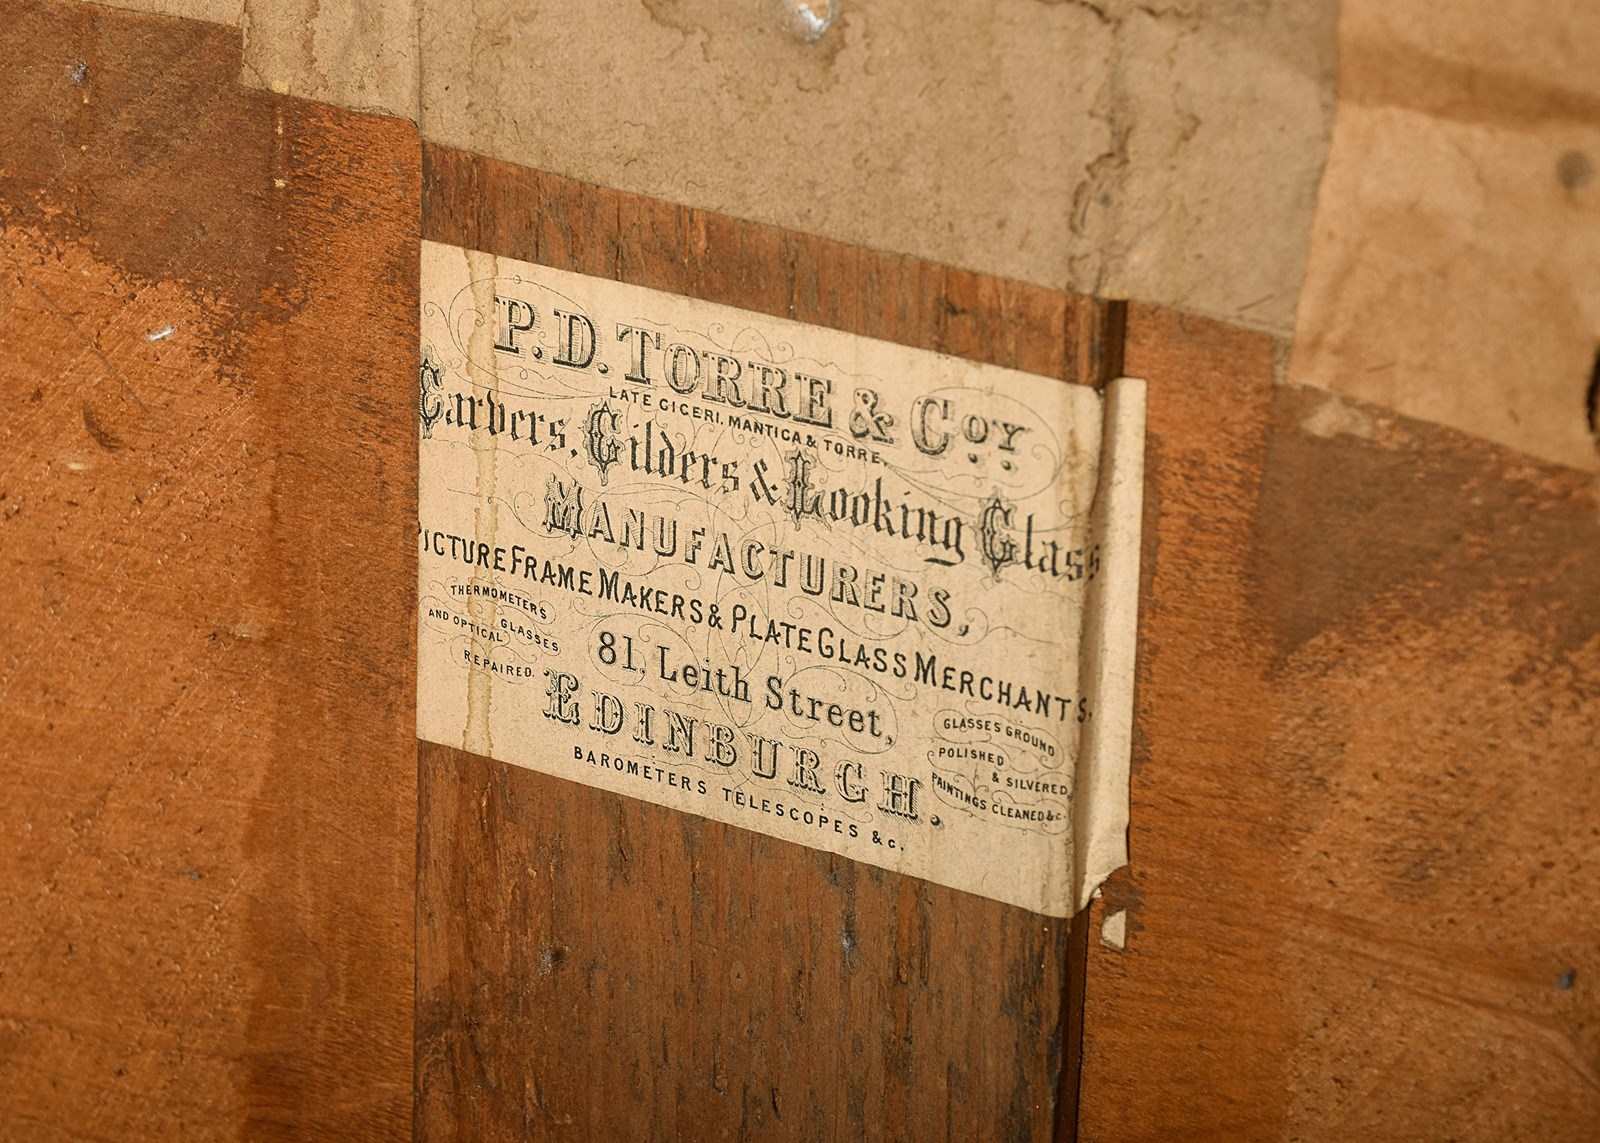 P. D. TORRE & COY
LATE CICERI, MANTICA & TORRE,
Carvers, Gilders & Looking Glass
MANUFACTURERS,
PICTURE FRAME MAKERS & PLATE GLASS MERCHANTS,
THERMOMETERS
AND OPTICAL GLASSES
REPAIRED.
81, Leith Street,
EDINBURGH.
BAROMETERS TELESCOPES &c.
GLASSES GROUND
POLISHED
& SILVERED,
PAINTINGS CLEANED &c.